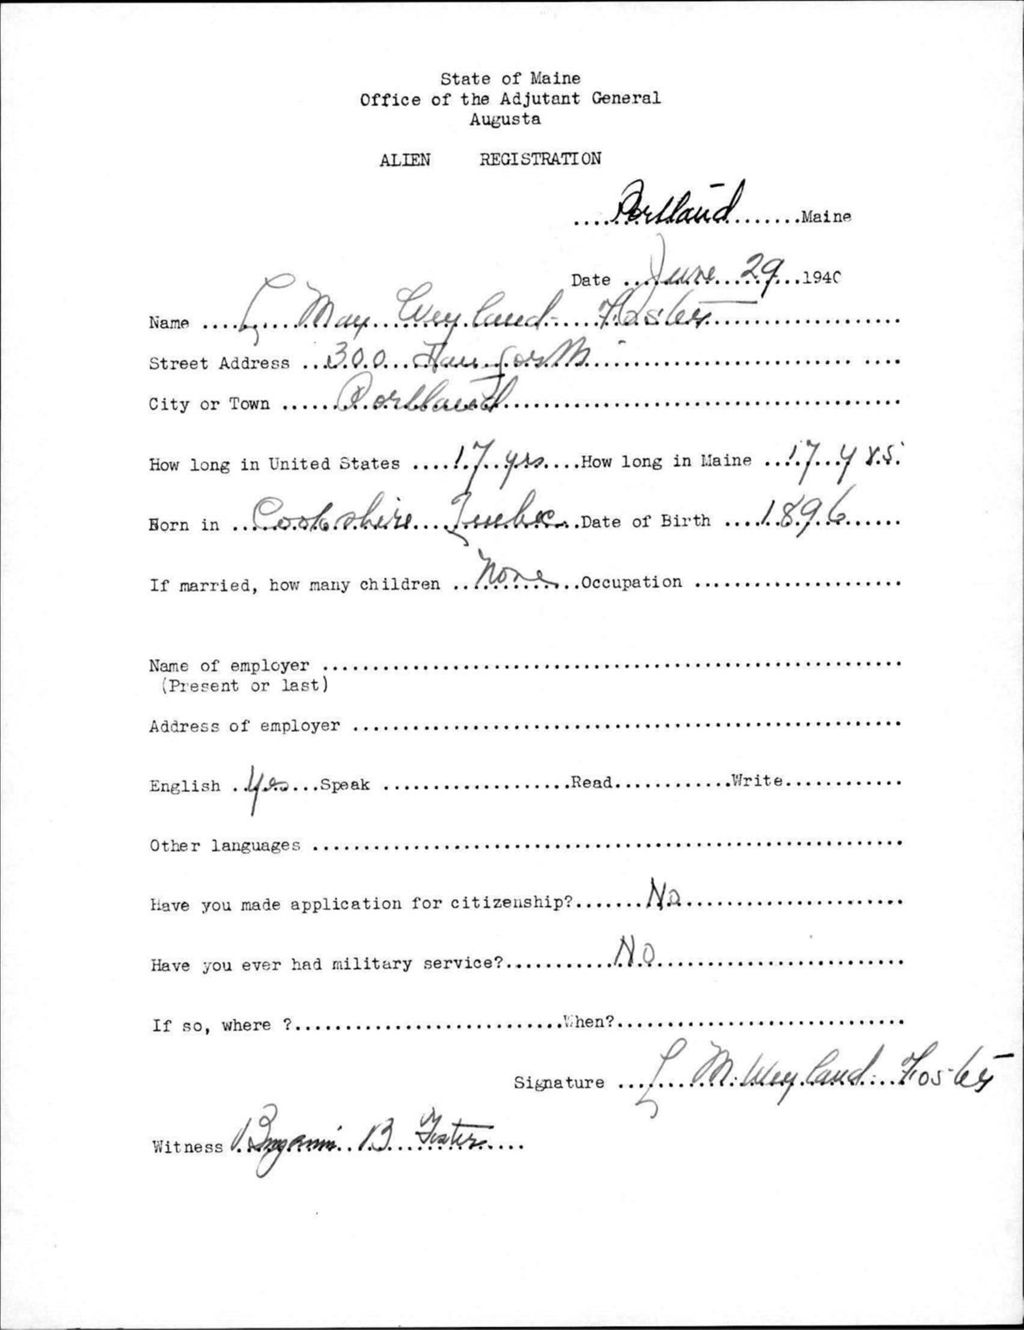 State of Maine
Office of the Adjutant General
Augusta
ALIEN REGISTRATION
Portland Maine
Date June 29 1940
Name L May Weyland-Foster
Street Address 300 Danforth
City or Town Portland
How long in United States 17 yrs How long in Maine 17 yrs.
Born in Cookshire Quebec Date of Birth 1896
If married, how many children None Occupation
Name of employer
(Present or last)
Address of employer
English Yes Speak Read Write
Other languages
Have you made application for citizenship? No
Have you ever had military service? No
If so, where ? When?
Signature L M. Weyland-Foster
Witness Benjamin B Foster